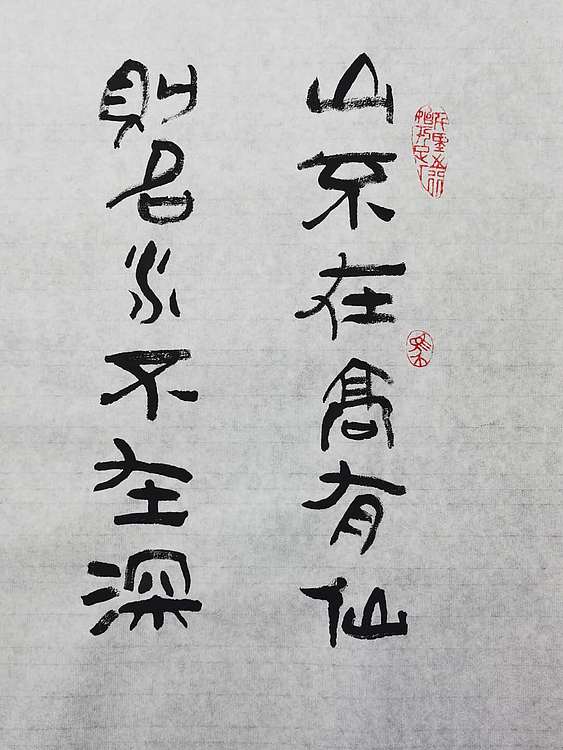 山不在高有仙
則名水不在深